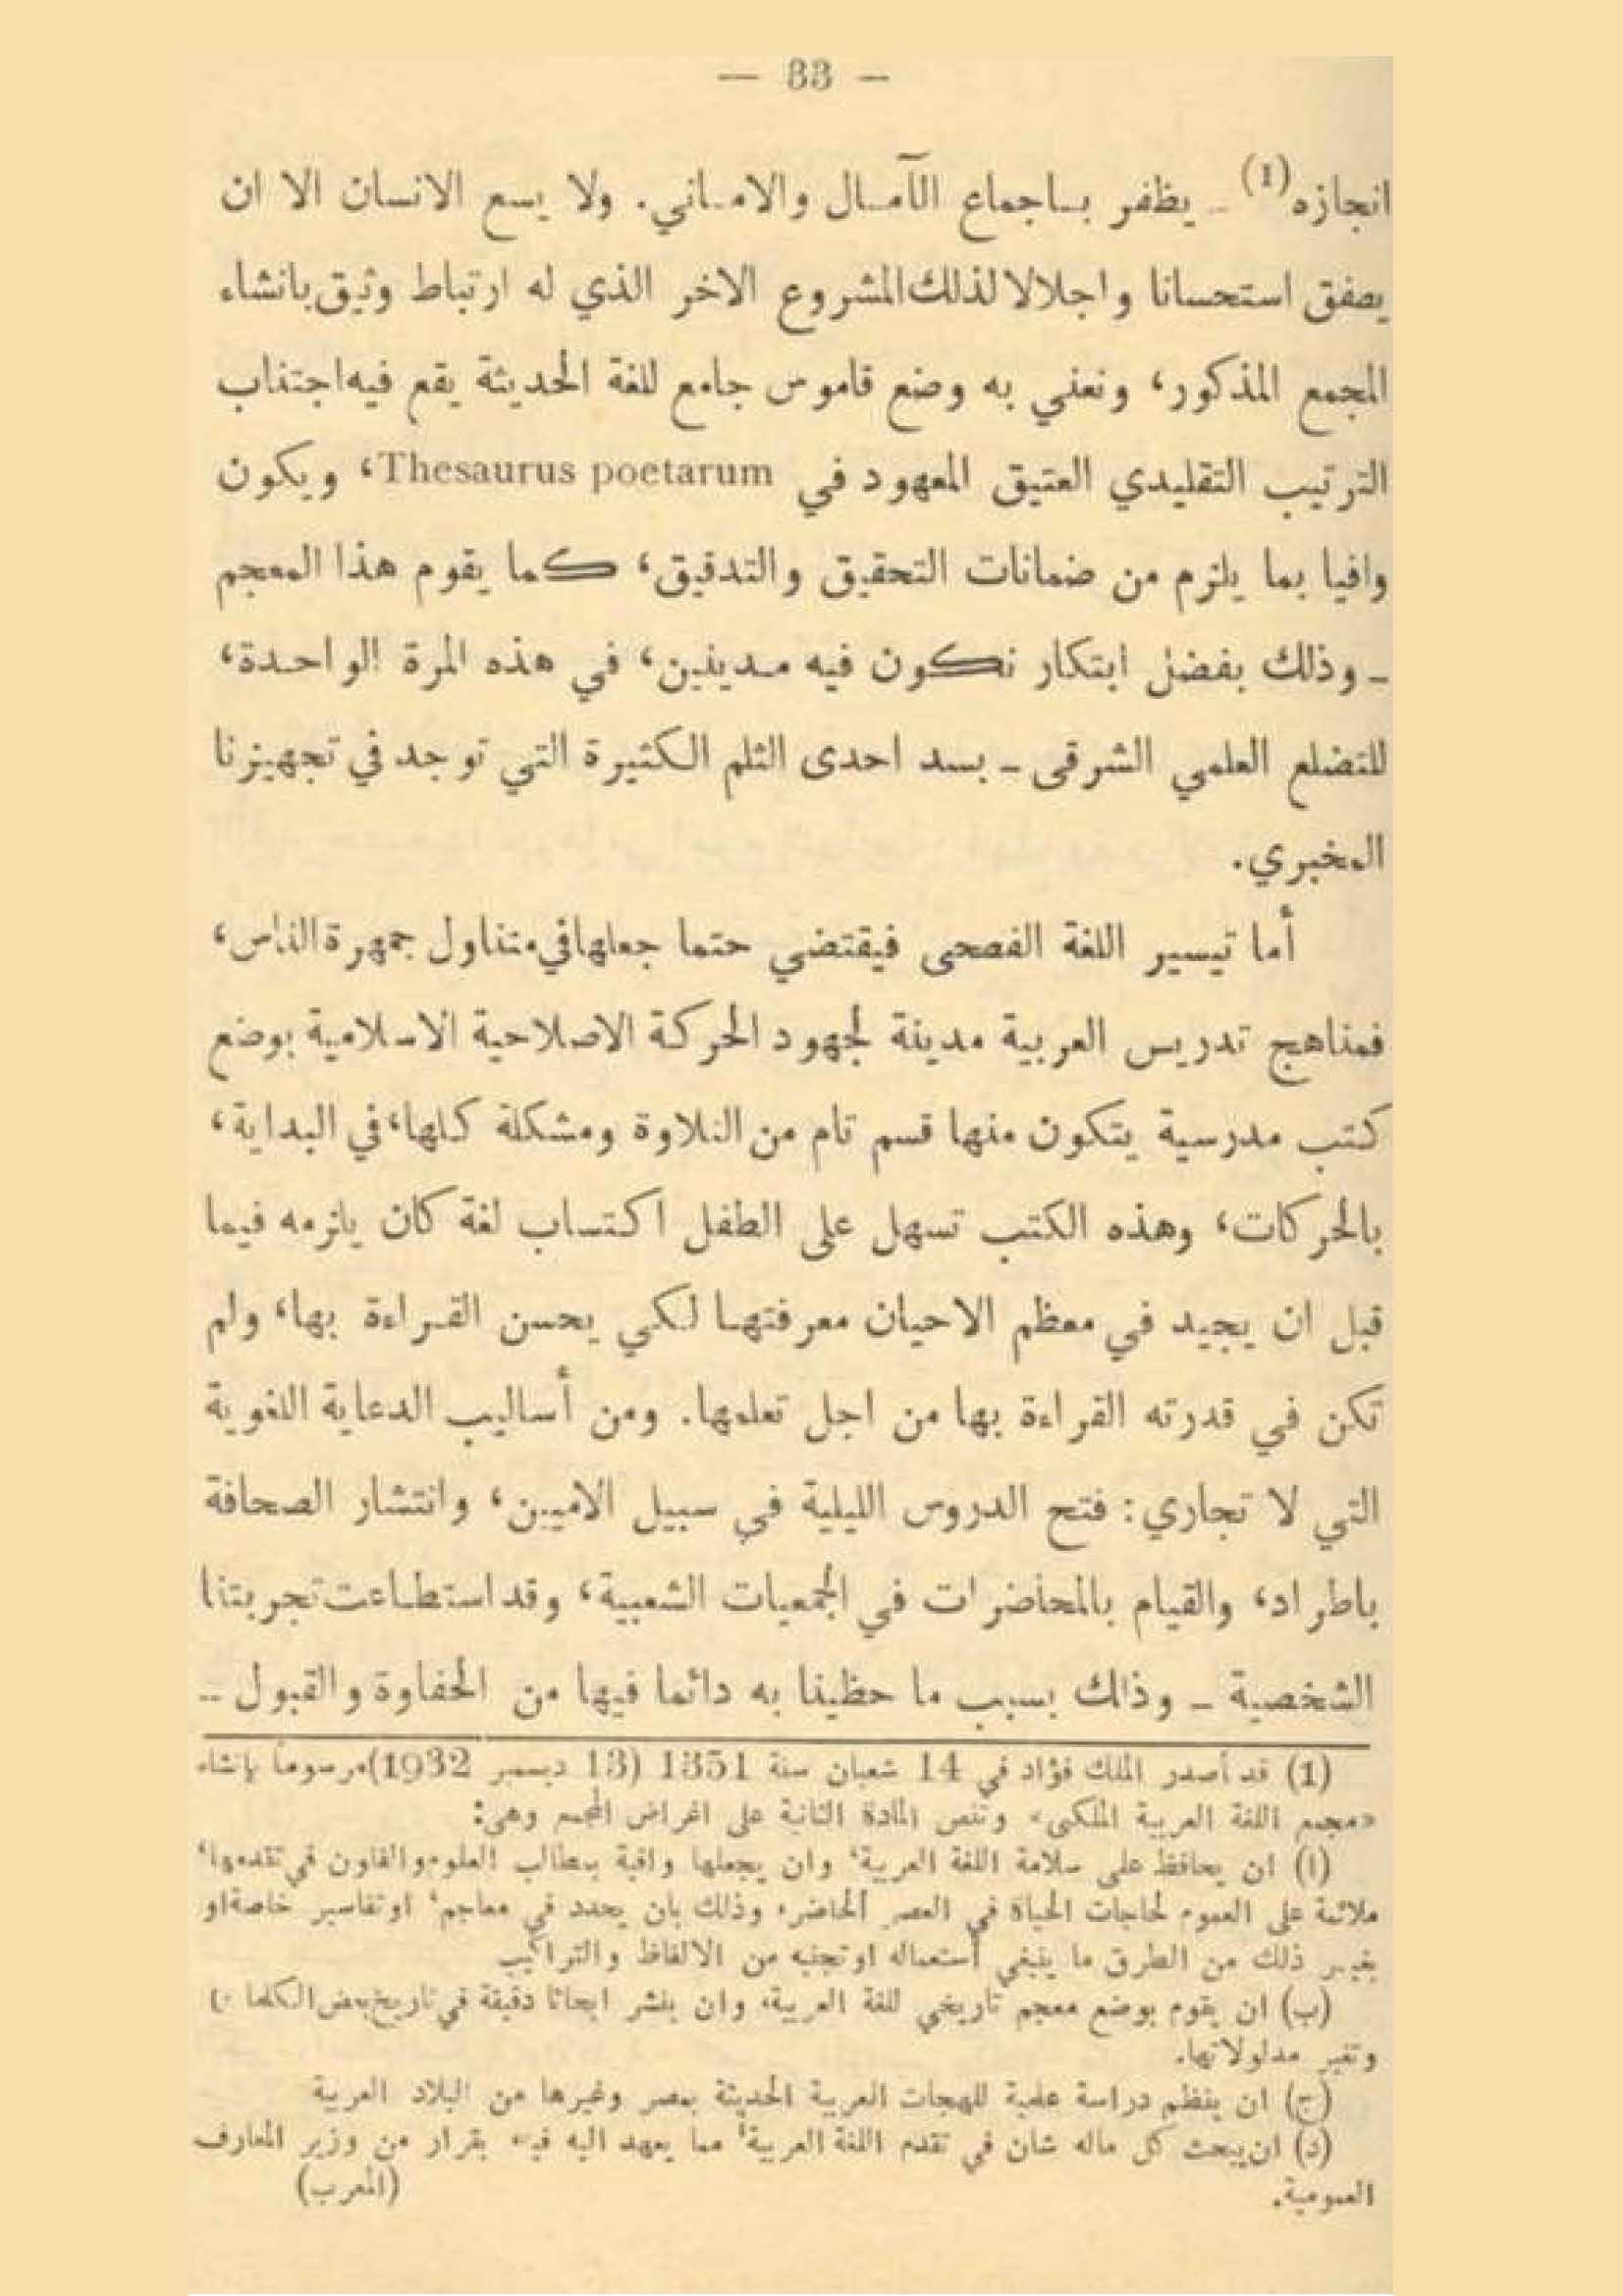 — 33 —
انجازه(1) ـ يظفر باجماع الآمال والاماني. ولا يسع الانسان الا ان
يصفق استحسانا واجلالا لذلك المشروع الاخر الذي له ارتباط وثيق بانشاء
المجمع المذكور، ونعني به وضع قاموس جامع للغة الحديثة يقع فيه اجتناب
الترتيب التقليدي العتيق المعهود في Thesaurus poetarum، ويكون
وافيا بما يلزم من ضمانات التحقيق والتدقيق، كما يقوم هذا المعجم
ـ وذلك بفضل ابتكار نكون فيه مدينين، في هذه المرة الواحدة،
للتضلع العلمي الشرقى ـ بسد احدى الثلم الكثيرة التي توجد في تجهيزنا
المخبري.
أما تيسير اللغة الفصحى فيقتضي حتما جعلها في متناول جمهرة الناس،
فمناهج تدريس العربية مدينة لجهود الحركة الاصلاحية الاسلامية بوضع
كتب مدرسية يتكون منها قسم تام من التلاوة ومشكلة كلها، في البداية،
بالحركات، وهذه الكتب تسهل على الطفل اكتساب لغة كان يلزمه فيما
قبل ان يجيد في معظم الاحيان معرفتها لكي يحسن القراءة بها، ولم
تكن في قدرته القراءة بها من اجل تعلمها. ومن أساليب الدعاية اللغوية
التي لا تجاري: فتح الدروس الليلية في سبيل الاميين، وانتشار الصحافة
باطراد، والقيام بالمحاضرات في الجمعيات الشعبية، وقد استطاعت تجربتنا
الشخصية ـ وذلك بسبب ما حظينا به دائما فيها من الحفاوة والقبول ـ
(1) قد أصدر الملك فؤاد في 14 شعبان سنة 1351 (13 ديسمبر 1932) مرسوماً بإنشاء
«مجمع اللغة العربية الملكى» وتنص المادة الثانية على اغراض المجمع وهي:
(ا) ان يحافظ على سلامة اللغة العربية، وان يجعلها وافية بمطالب العلوم والفنون في تقدمها،
ملائمة على العموم لحاجات الحياة في العصر الحاضر، وذلك بان يحدد في معاجم، او تفاسير خاصة او
بغير ذلك من الطرق ما ينبغي أستعماله او تجنبه من الالفاظ والتراكيب
(ب) ان يقوم بوضع معجم تاريخي للغة العربية، وان ينشر ابحاثا دقيقة في تاريخ بعض الكلمات
وتغير مدلولاتها.
(ج) ان ينظم دراسة علمية للهجات العربية الحديثة بمصر وغيرها من البلاد العربية
(د) ان يبحث كل ماله شان في تقدم اللغة العربية، مما يعهد اليه فيه بقرار من وزير المعارف
العمومية. (المعرب)